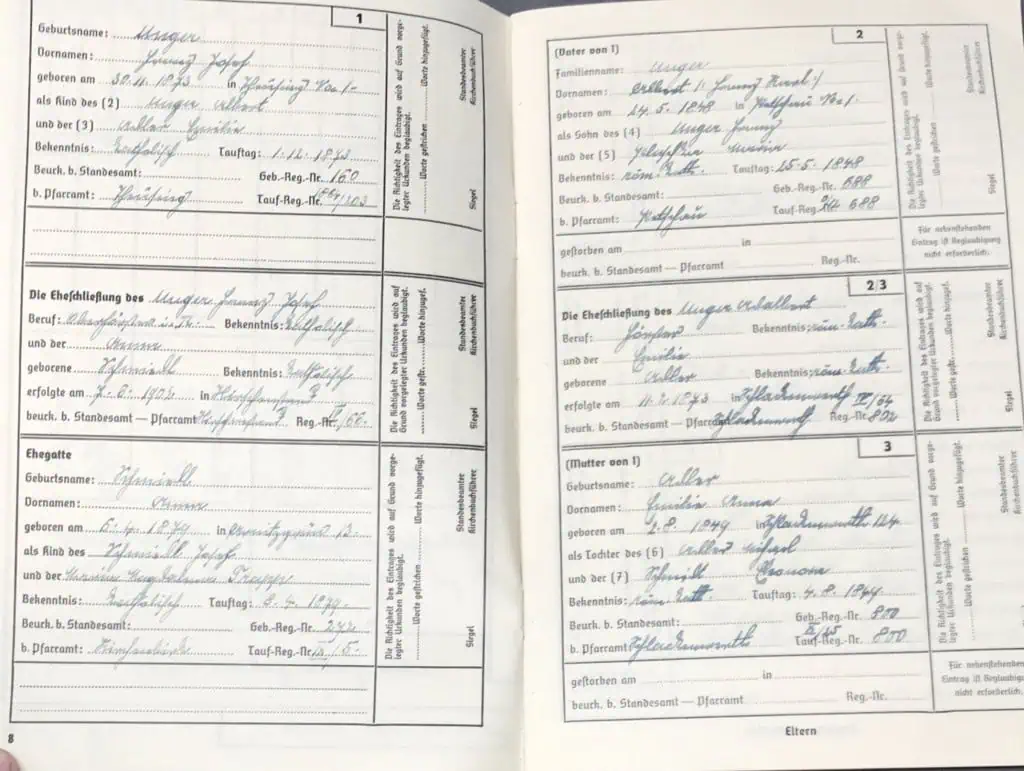 1
Geburtsname: Unger
Vornamen: Franz Josef
geboren am 30.11.1873 in Theusing No 1
als Kind des (2) Unger Albert
und der (3) Adler Emilie
Bekenntnis: Katholisch Tauftag: 1.12.1873
Beurk. b. Standesamt: Geb.-Reg.-Nr. 160
b. Pfarramt: Theusing Tauf-Reg.-Nr. /203
Die Richtigkeit des Eintrages wird auf Grund vorgelegter Urkunden beglaubigt.
Worte gestrichen Worte hinzugefügt.
Standesbeamter
Kirchenbuchführer
Siegel
Die Eheschließung des Unger Franz Josef
Beruf: Oberförster i. R. Bekenntnis: Katholisch
und der Anna
geborene Schmiedl Bekenntnis: Katholisch
erfolgte am 7.6. in
beurk. b. Standesamt — Pfarramt Reg.-Nr. /66
Die Richtigkeit des Eintrages wird auf Grund vorgelegter Urkunden beglaubigt.
Worte gestr. Worte hinzugef.
Standesbeamter
Kirchenbuchführer
Siegel
Ehegatte
Geburtsname: Schmiedl
Vornamen: Anna
geboren am 5.4.1879 in 13
als Kind des Schmiedl Josef
und der Magdalena
Bekenntnis: Katholisch Tauftag: 1879
Beurk. b. Standesamt: Geb.-Reg.-Nr. 272
b. Pfarramt: Tauf-Reg.-Nr.
Die Richtigkeit des Eintrages wird auf Grund vorgelegter Urkunden beglaubigt.
Worte gestrichen Worte hinzugefügt.
Standesbeamter
Kirchenbuchführer
Siegel
8
2
(Vater von 1)
Familienname: Unger
Vornamen: Albert /: Franz Karl :/
geboren am 24.5.1848 in Petschau No 1
als Sohn des (4) Unger Franz
und der (5) Maria
Bekenntnis: röm. kath. Tauftag: 25.5.1848
Beurk. b. Standesamt: Geb.-Reg.-Nr. 688
b. Pfarramt: Petschau Tauf-Reg. 688
gestorben am in
beurk. b. Standesamt — Pfarramt Reg.-Nr.
Die Richtigkeit des Eintrages wird auf Grund vorgelegter Urkunden beglaubigt.
Worte gestrichen Worte hinzugefügt.
Standesbeamter
Kirchenbuchführer
Siegel
Für nebenstehenden
Eintrag ist Beglaubigung
nicht erforderlich.
2/3
Die Eheschließung des Unger Adalbert
Beruf: Förster Bekenntnis: röm. kath.
und der Emilie
geborene Adler Bekenntnis: röm. kath.
erfolgte am 11.2.1873 in Schlackenwerth IV/64
beurk. b. Standesamt — Pfarramt Schlackenwerth Reg.-Nr. 802
Die Richtigkeit des Eintrages wird auf Grund vorgelegter Urkunden beglaubigt.
Worte gestr. Worte hinzugef.
Standesbeamter
Kirchenbuchführer
Siegel
3
(Mutter von 1)
Geburtsname: Adler
Vornamen: Emilie Anna
geboren am 2.8.1849 in Schlackenwerth 124
als Tochter des (6) Adler Michael
und der (7) Schmidt Eleonora
Bekenntnis: röm. kath. Tauftag: 4.8.1849
Beurk. b. Standesamt: Geb.-Reg.-Nr. 800
b. Pfarramt Schlackenwerth Tauf-Reg.-Nr. 800
gestorben am in
beurk. b. Standesamt — Pfarramt Reg.-Nr.
Die Richtigkeit des Eintrages wird auf Grund vorgelegter Urkunden beglaubigt.
Worte gestrichen Worte hinzugefügt.
Standesbeamter
Kirchenbuchführer
Siegel
Für nebenstehenden
Eintrag ist Beglaubigung
nicht erforderlich.
Eltern